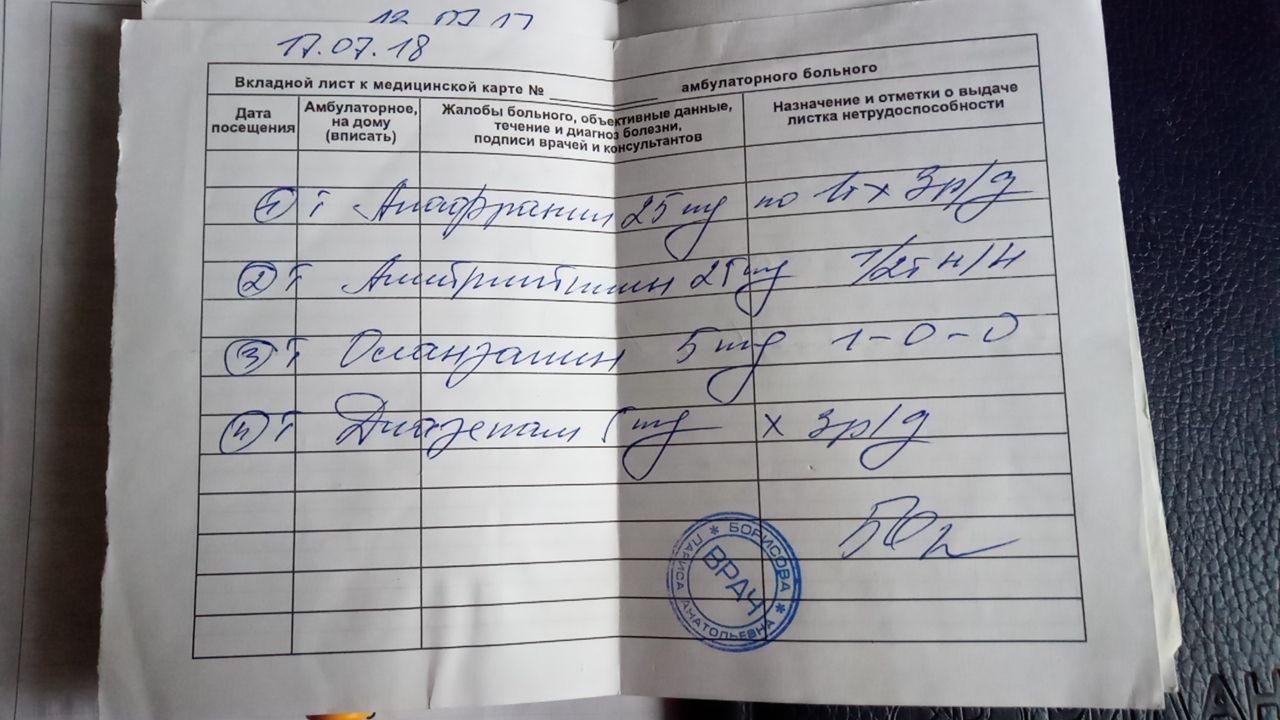 17.07.18
Вкладной лист к медицинской карте № ________ амбулаторного больного
Дата посещения
Амбулаторное, на дому (вписать)
Жалобы больного, объективные данные, течение и диагноз болезни, подписи врачей и консультантов
Назначение и отметки о выдаче листка нетрудоспособности
① Т Анафранил 25 mg по 1т х 3р/д
② Т Амитриптилин 25 mg 1/2т н/н
③ Т Оланзапин 5 mg 1-0-0
④ Т Диазепам 5 mg х 3р/д
БОРИСОВА ЛАРИСА АНАТОЛЬЕВНА
ВРАЧ